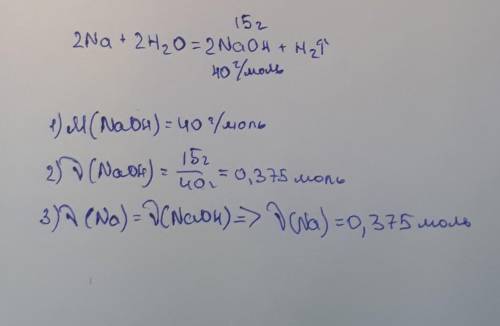 15г
2Na + 2H₂O = 2NaOH + H₂↑
40 г/моль
1) M(NaOH) = 40 г/моль
2) ν(NaOH) = 15г/40г = 0,375 моль
3) ν(Na) = ν(NaOH) => ν(Na) = 0,375 моль